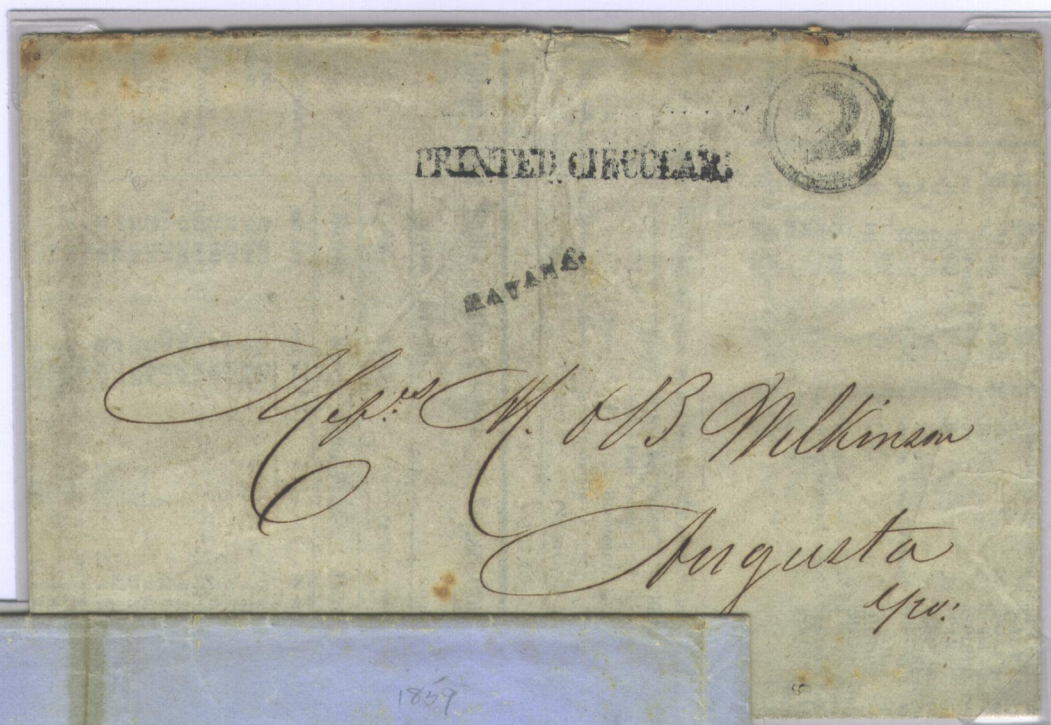 2
PRINTED CIRCULAR.
HAVANA.
Messrs. M. & B Wilkinson
Augusta
Geo:
1859